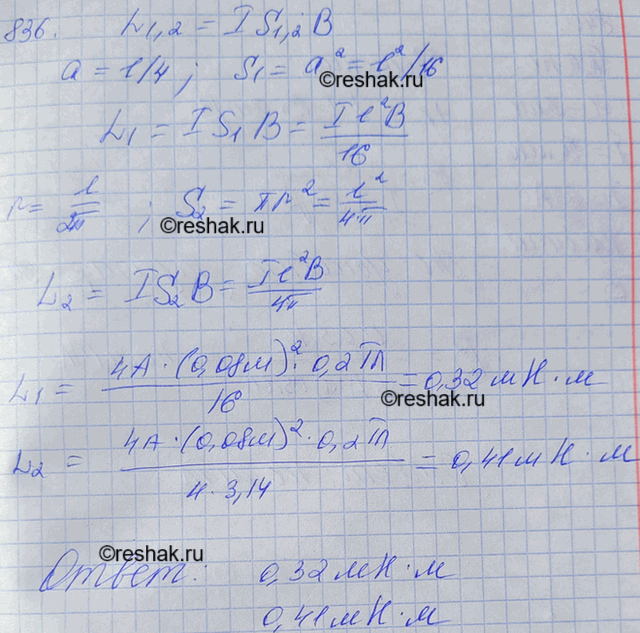 836. L₁,₂ = I S₁,₂ B
a = l/4 ; S₁ = a² = l²/16
©reshak.ru
L₁ = I S₁ B = I l² B / 16
r = l / 2π ; S₂ = πr² = l² / 4π
©reshak.ru
L₂ = I S₂ B = I l² B / 4π
L₁ = 4А · (0,08м)² · 0,2 Тл / 16 = 0,32 мН · м
©reshak.ru
L₂ = 4А · (0,08м)² · 0,2 Тл / 4 · 3,14 = 0,41 мН · м
©reshak.ru
Ответ: 0,32 мН · м
0,41 мН · м